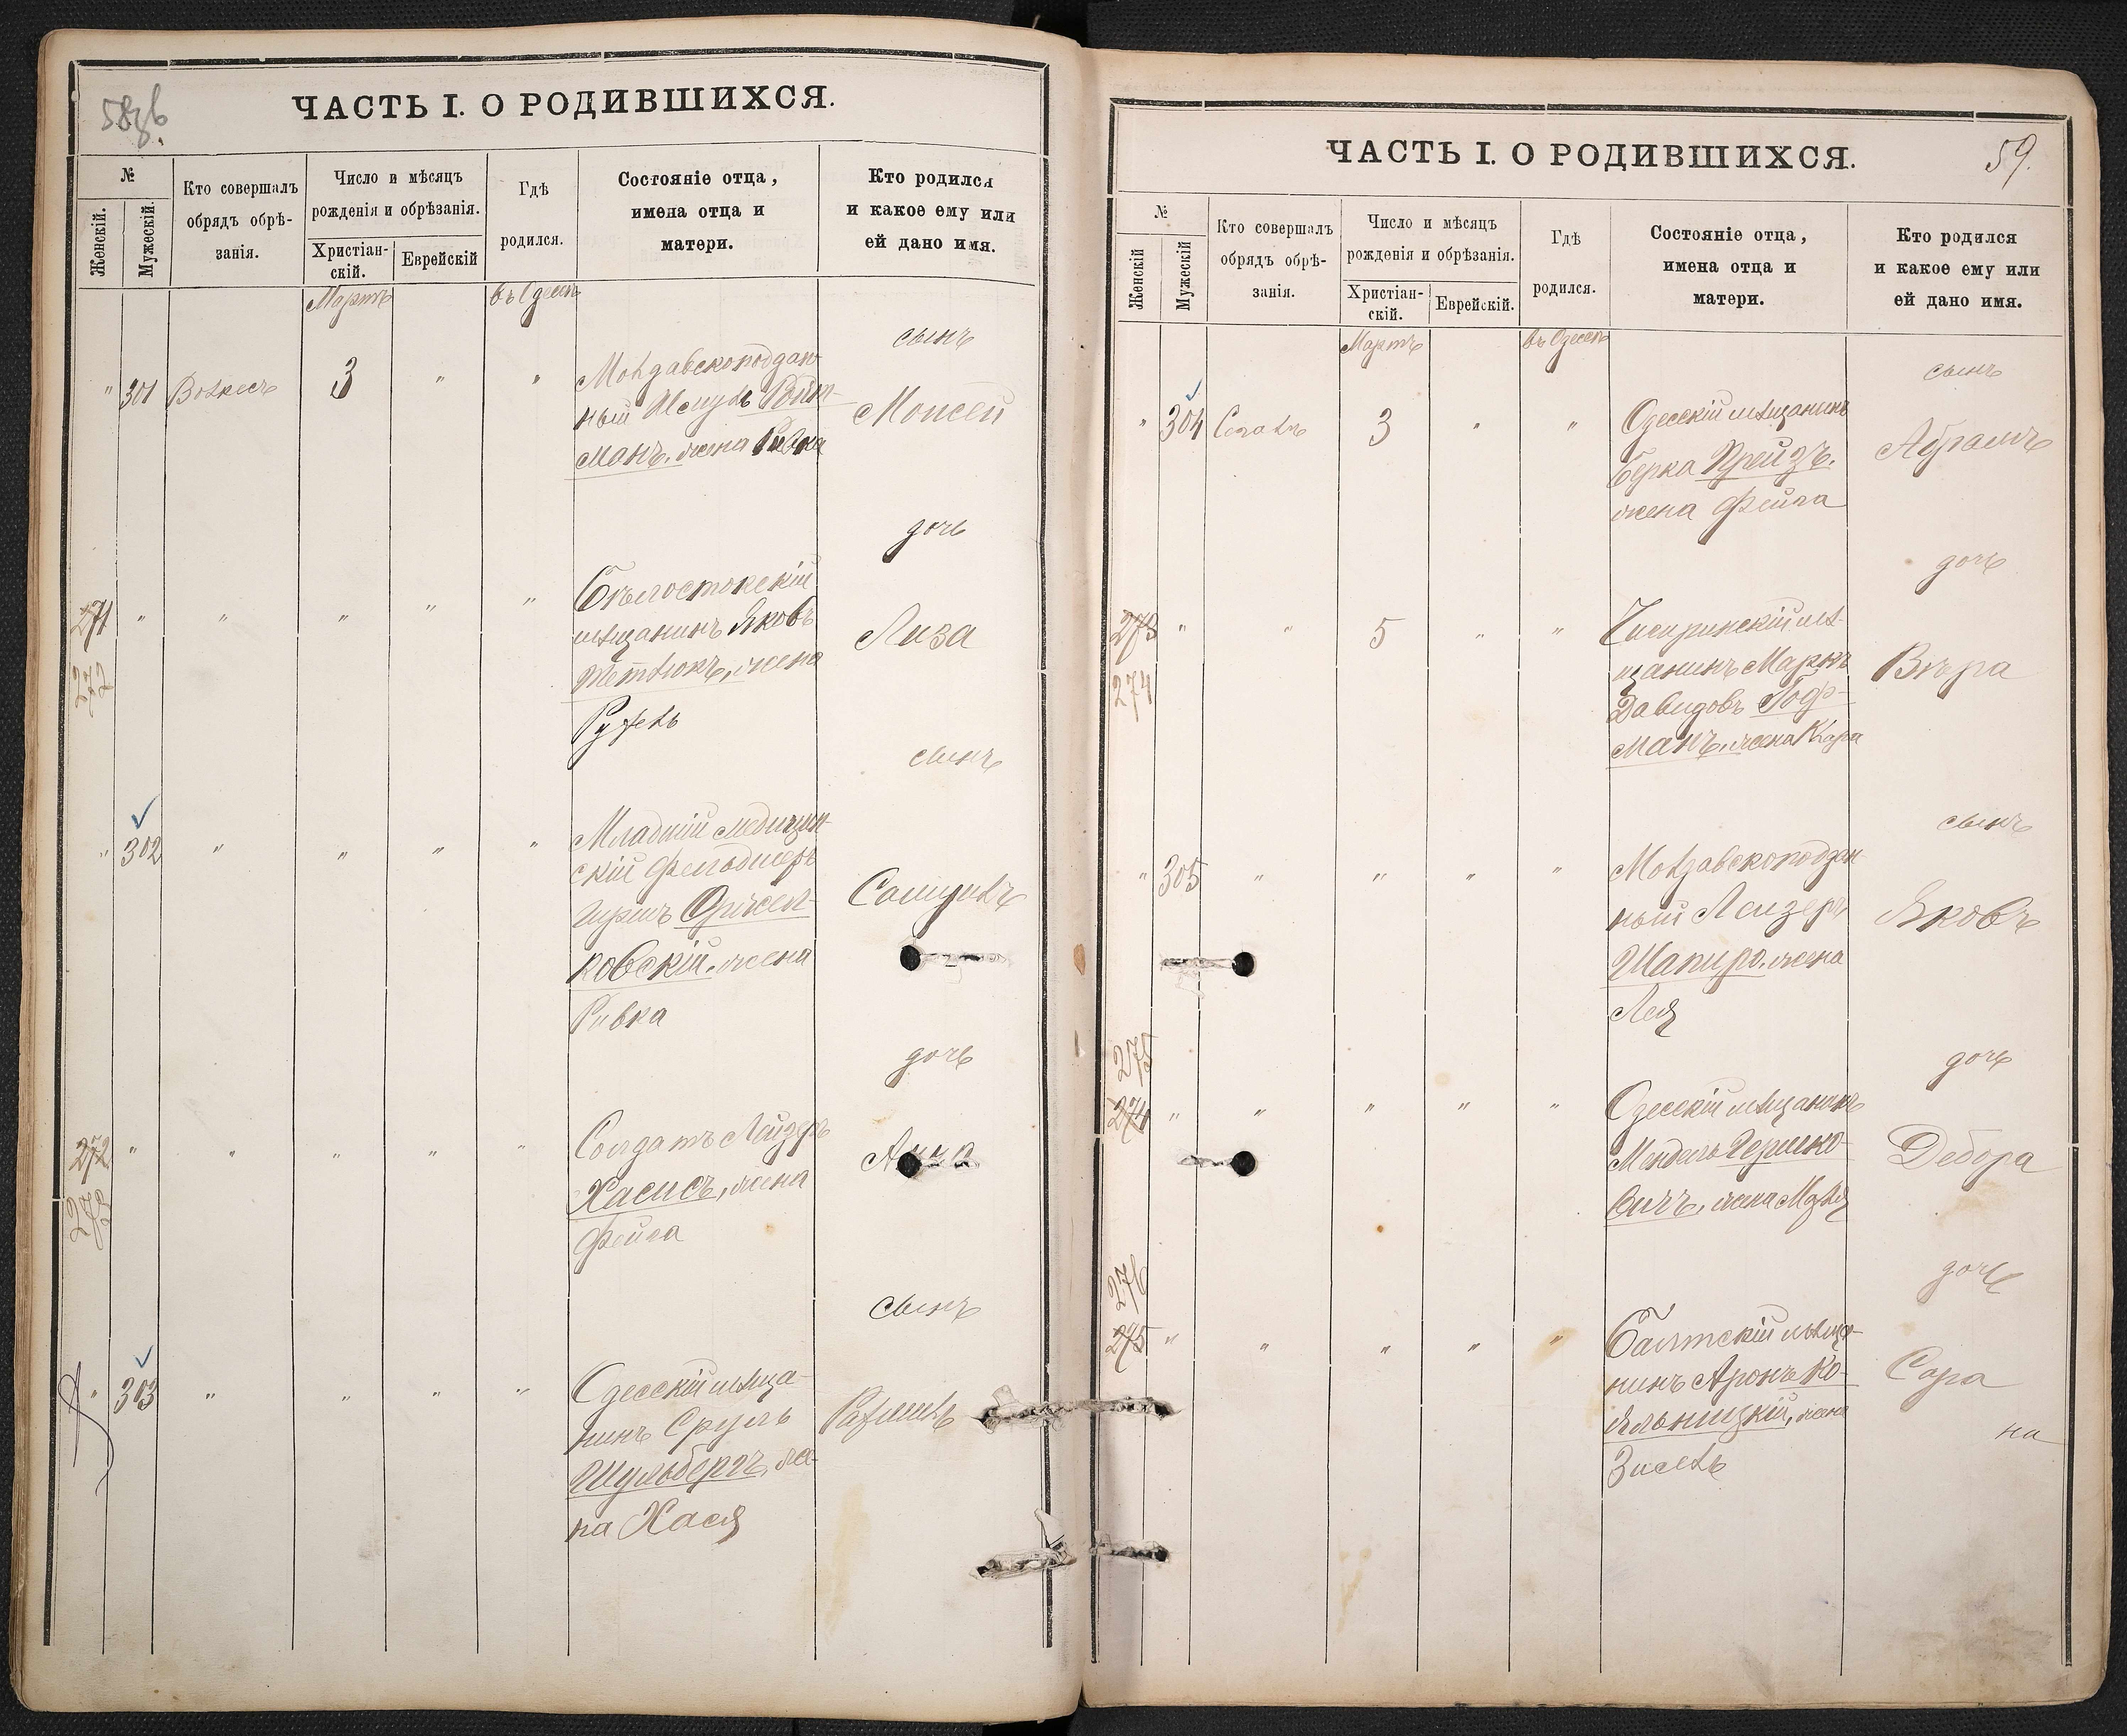 58 об.
ЧАСТЬ I. О РОДИВШИХСЯ.
№
Женскій.
Мужескій.
Кто совершалъ
обрядъ обрѣ-
занія.
Число и мѣсяцъ
рожденія и обрѣзанія.
Христіан-
скій.
Еврейскій
Гдѣ
родился.
Состояніе отца,
имена отца и
матери.
Кто родился
и какое ему или
ей дано имя.
Мартъ
въ Одессѣ
сынъ
" 301 3 " "
Молдавскоподдан-
ный Ройт-
манъ, жена Ривка
Моисей
дочь
271 " " " " "
272
Бѣлостокскій
мѣщанинъ Яковъ
жена
Рухль
Лиза
сынъ
" 302 " " " "
Младшій медицин-
скій фельдшеръ
ковскій, жена
Ривка
Самуилъ
дочь
272 " " " " "
273
Солдатъ Лейзеръ
Хасисъ, жена
Фейга
Анна
сынъ
" 303 " " " "
Одесскій мѣща-
нинъ Сруль
Шульбергъ, же-
на Хася
Рахмиль
59.
ЧАСТЬ I. О РОДИВШИХСЯ.
№
Женскій
Мужескій
Кто совершалъ
обрядъ обрѣ-
занія.
Число и мѣсяцъ
рожденія и обрѣзанія.
Христіан-
скій.
Еврейскій.
Гдѣ
родился.
Состояніе отца,
имена отца и
матери.
Кто родился
и какое ему или
ей дано имя.
Мартъ
въ Одессѣ
сынъ
" 304 Сегалъ 3 " "
Одесскій мѣщанинъ
Берка Крейзъ,
жена Фейга
Абрамъ
дочь
273 " " 5 " "
274
Чигиринскій мѣ-
щанинъ Маркъ
Давидовъ Гоф-
манъ, жена Кара
Вѣра
сынъ
" 305 " " " "
Молдавскоподдан-
ный Лейзеръ
Шапиро, жена
Лея
Яковъ
275
дочь
274 " " " " "
Одесскій мѣщанинъ
Мендель Гершко-
вичъ, жена
Дебора
276
дочь
275 " " " " "
Балтскій мѣща-
нинъ Аронъ Ко-
яльницкій, жена
Зисель
Сара
на